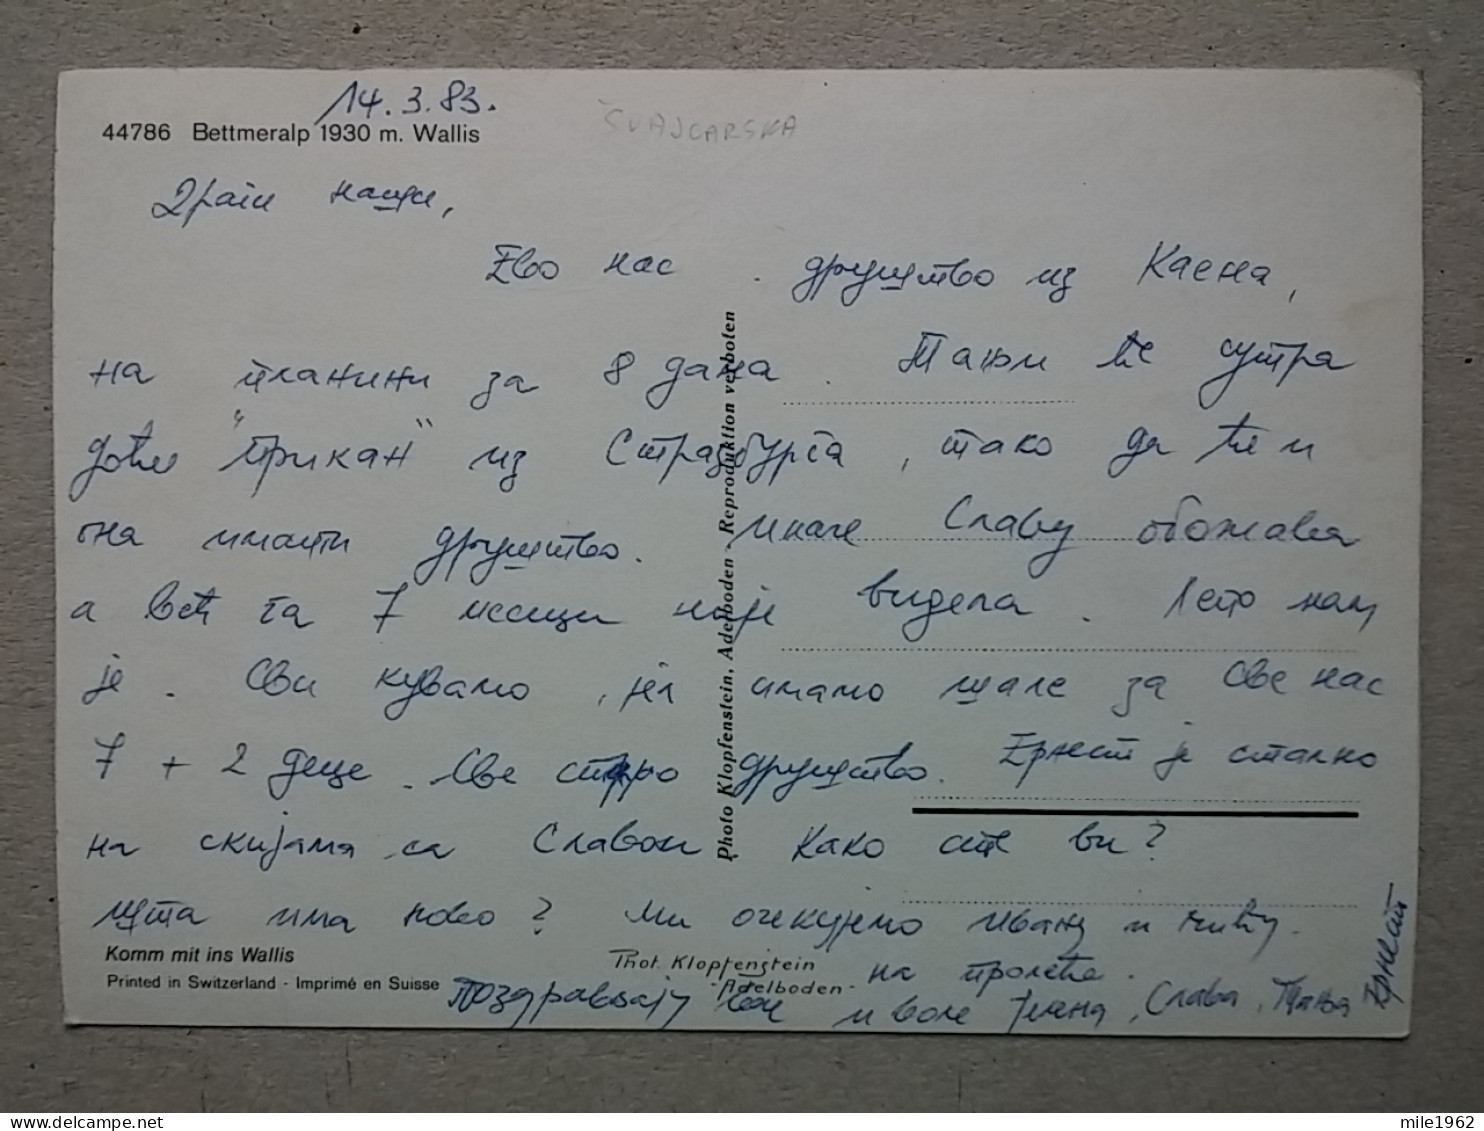 14.3.83.
44786 Bettmeralp 1930 m. Wallis
ŠVAJCARSKA
Драги наши,
Ево нас друштво из Каена,
на планини за 8 дана. Тањи ће сутра
доћи "Трикан" из Стразбурга, тако да ће и
она имати друштво. Иначе Славу обожава
а већ га 7 месеци није видела. Лепо нам
је. Сви кувамо, јер имамо шале за све нас
7 + 2 деце. Све старо друштво. Ернест је стално
на скијама са Славом. Како сте ви?
Шта има ново? Ми очекујемо Ивану и чику
на пролеће.
Поздрављају вас и воле Јелена, Слава, Тања
Ернест
Photo Klopfenstein, Adelboden - Reproduktion verboten
Komm mit ins Wallis
Printed in Switzerland - Imprimé en Suisse
Phot. Klopfenstein
- Adelboden -
mile1962